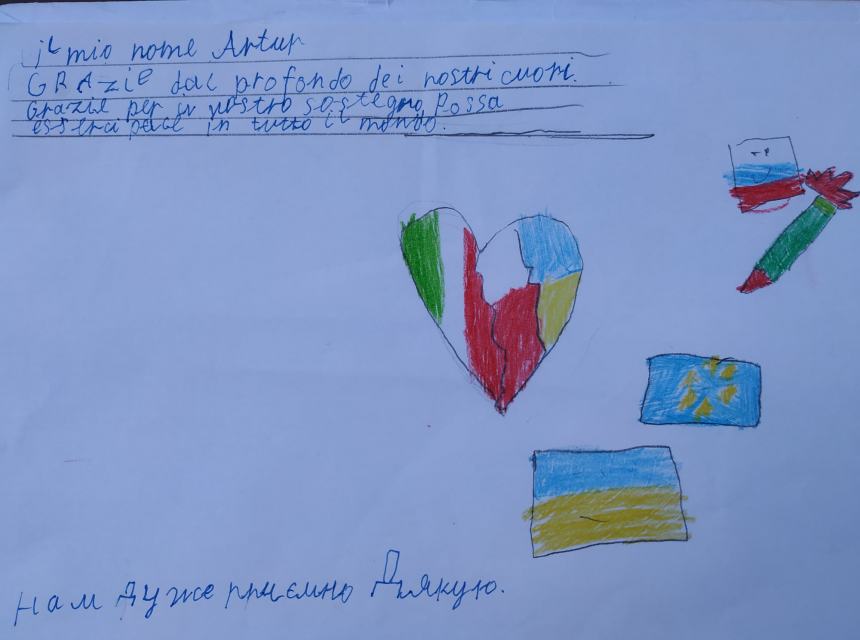 il mio nome Artur
GRAZIE dal profondo dei nostri cuori.
Grazie per il vostro sostegno, Possa
esserci pace in tutto il mondo.
Нам дуже приємно Дякую.